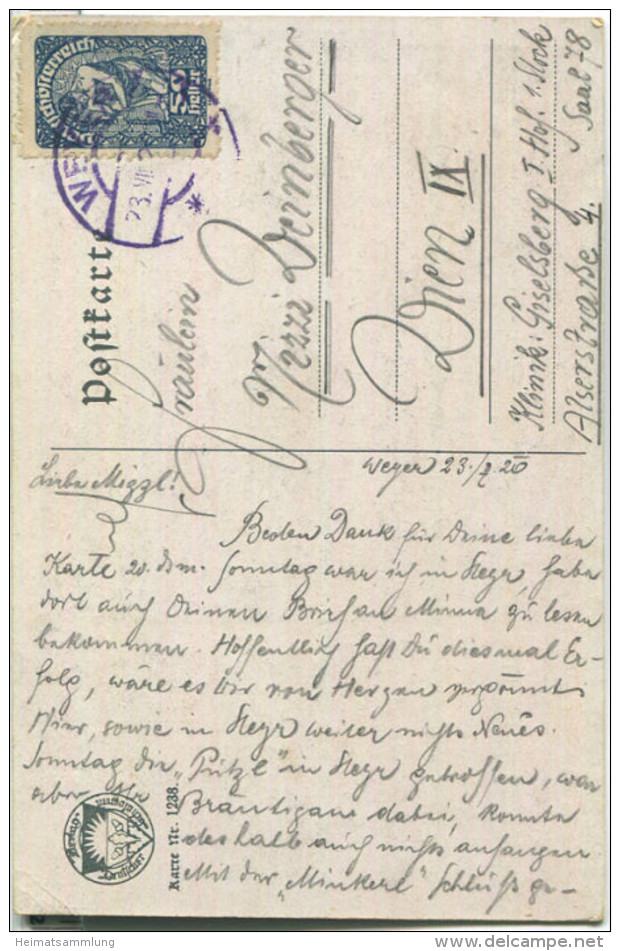 Deutschösterreich
50 Heller
WEYER
23.VII.20
Postkarte
Fräulein
Mizzi Deinberger
Wien IX.
Klinik: Giselsberg I. Hof. 1. Stock
Alserstraße 4. Saal 78
Weyer 23./7.20
Liebe Mizzl!
Besten Dank für Deine liebe
Karte 20. ds. m. Sonntag war ich in Steyr, habe
dort auch Deinen Brief an Minna zu lesen
bekommen. Hoffentlich hast Du diesmal Er-
folg, wäre es Dir von Herzen vergönnt.
Hier, sowie in Steyr weiter nichts Neues.
Sonntag die „Putzl" in Steyr getroffen, war
aber ihr Bräutigam dabei, konnte
deshalb auch nichts anfangen
Mit der „Minkerl" Schluß ge-
Verlag
Deutscher
Karte Nr. 1238.
Heimatsammlung
www.delcampe.net